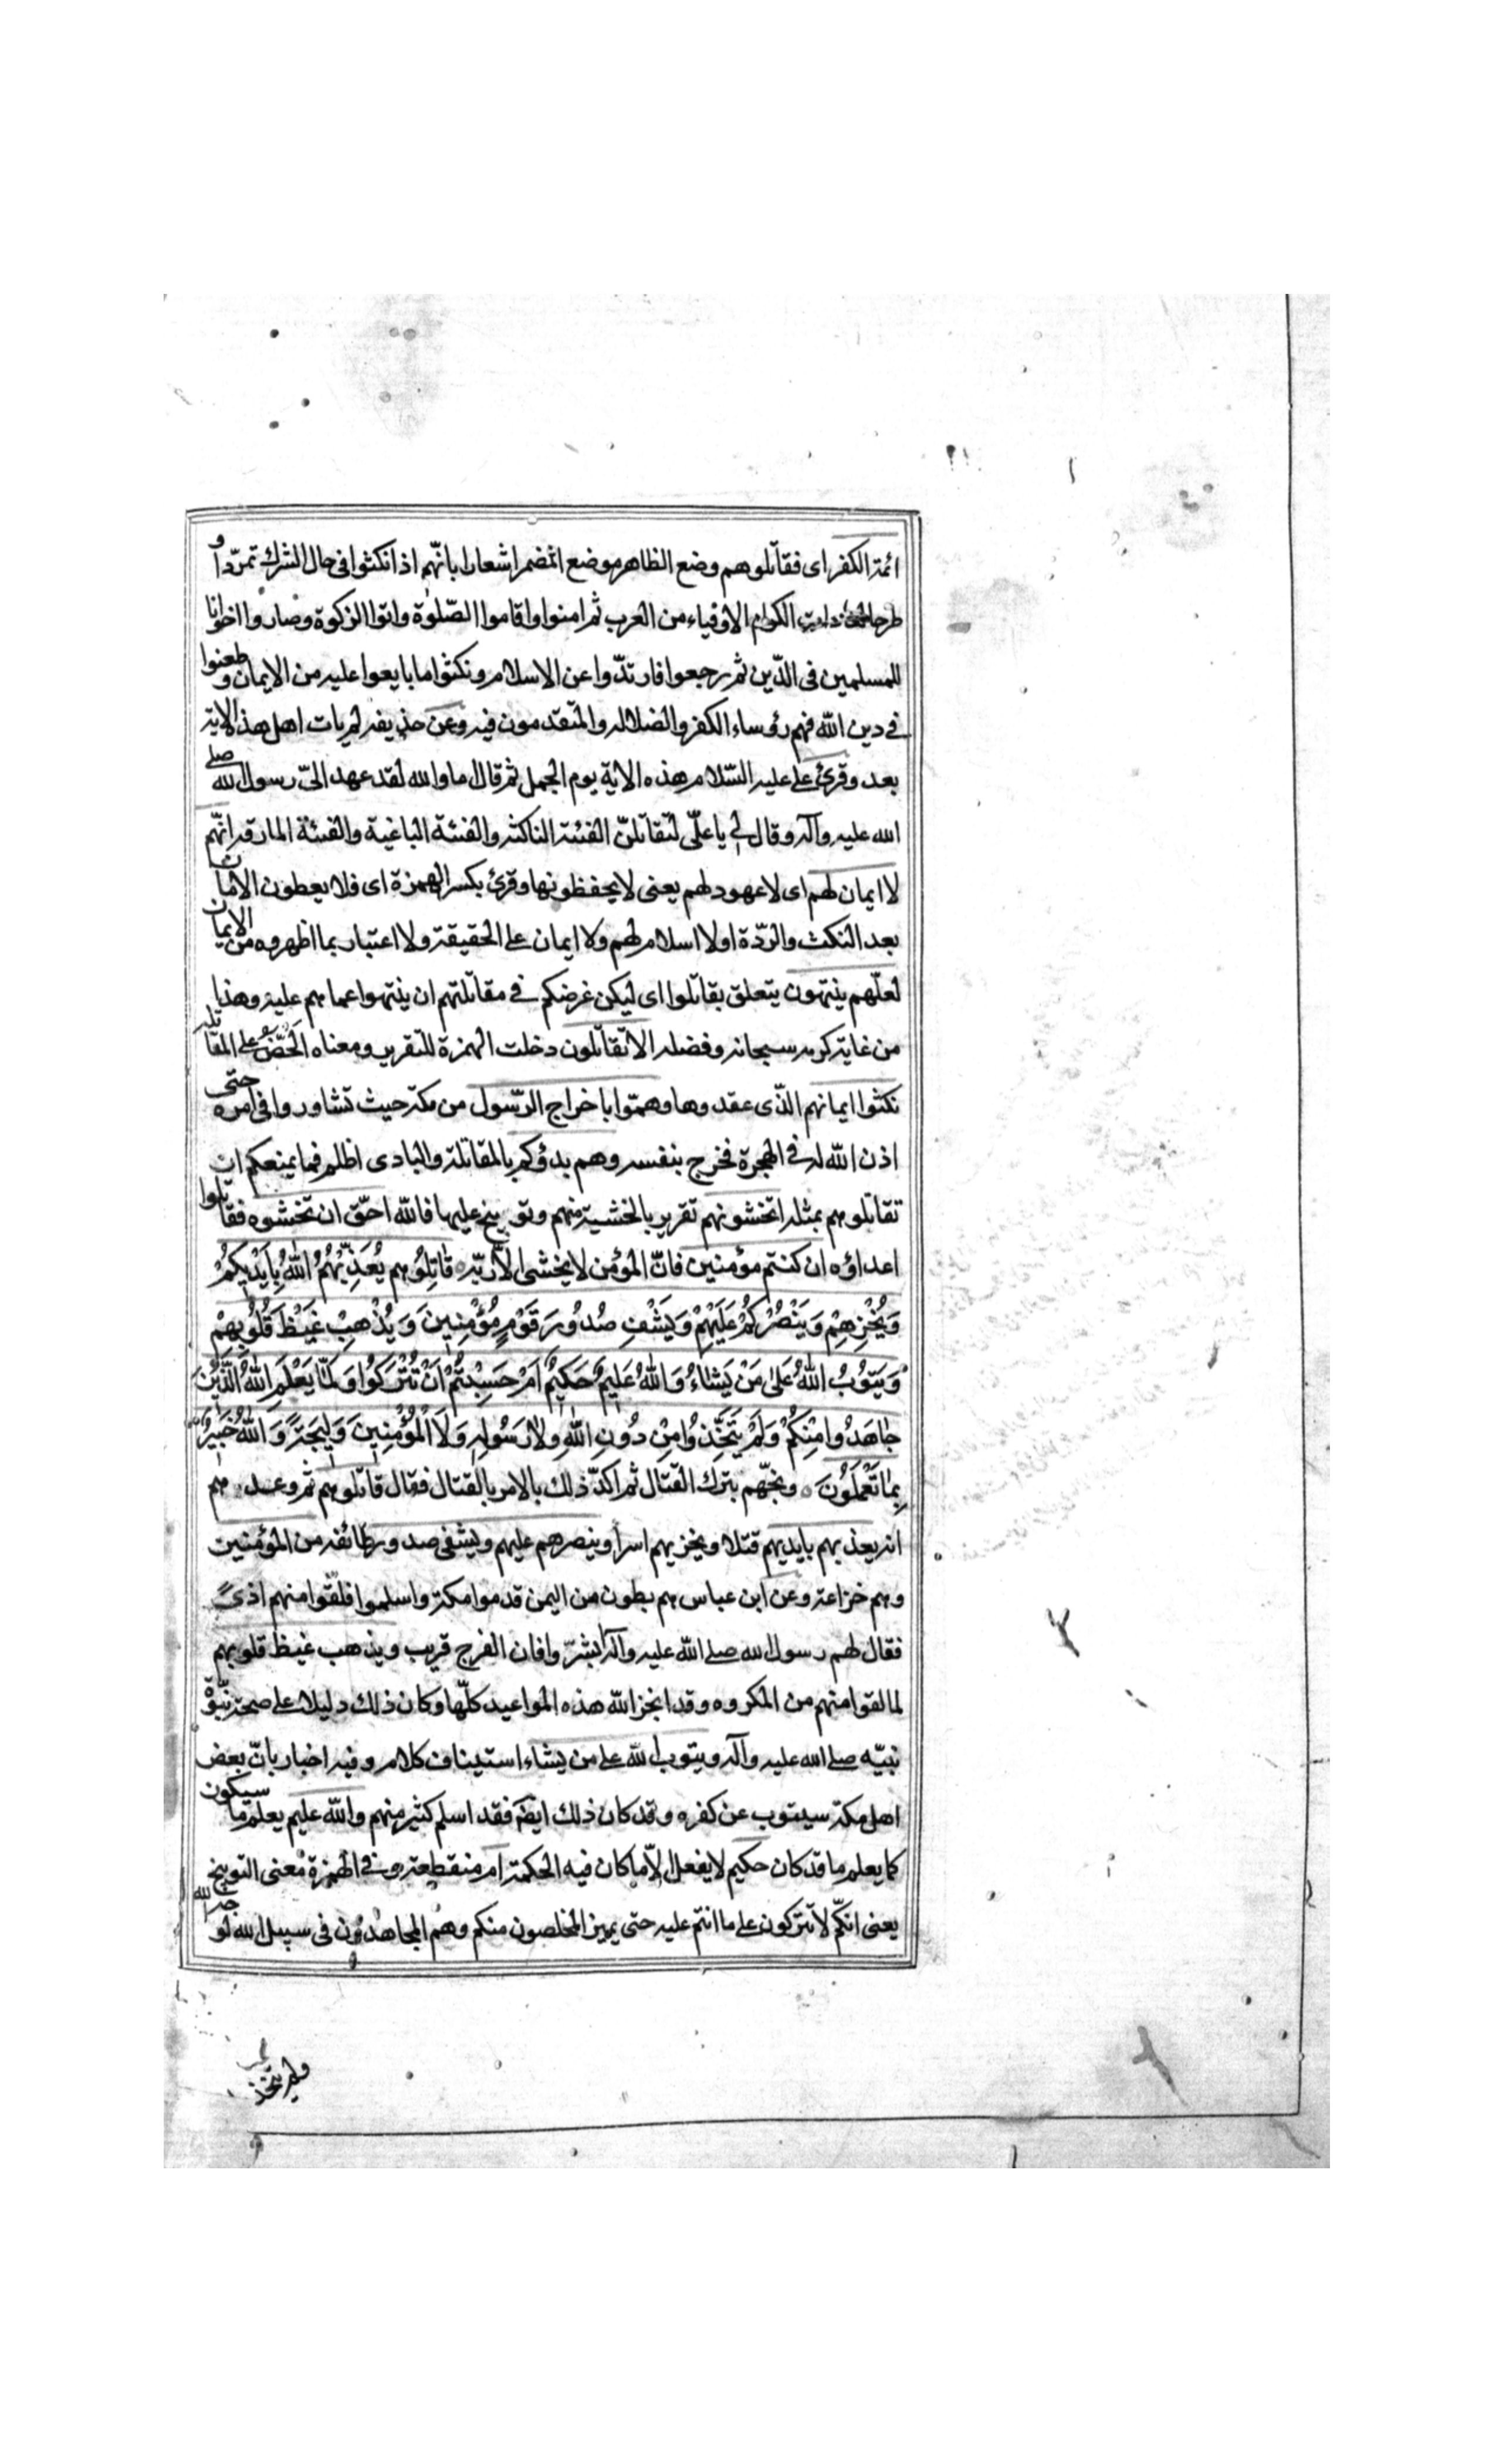 ائمة الكفر اى فقاتلوهم وضع الظاهر موضع المضمر اشعارا بانّهم اذا نكثوا فى حال الشرك تمرّدا و
طرحا الكرام الاوفياء من العرب ثم امنوا واقاموا الصّلوة واتوا الزكوة وصاروا اخوانا
للمسلمين فى الدّين ثم رجعوا فارتدّوا عن الاسلام ونكثوا ما بايعوا عليه من الايمان وطعنوا
فى دين الله فهم رؤساء الكفر والضلالة والمتقدمون فيه وعن حذيفه لم يات اهل هذه الاية
بعد وقرئ على عليه السّلام هذه الاية يوم الجمل ثم قال اما والله لقد عهد الىّ رسول الله صلى
الله عليه وآله وقال لى يا علّى لتقاتلنّ الفئة الناكثة والفئة الباغية والفئة المارقة انهّم
لا ايمان لهم اى لا عهود لهم يعنى لا يحفظونها وقرئ بكسر الهمزة اى فلا يعطون الامان
بعد النكث والردّة او لا اسلام لهم ولا ايمان على الحقيقة ولا اعتبار بما اظهروه من الايمان
لعلّهم ينتهون يتعلق بقاتلوا اى ليكن غرضكم فى مقاتلتهم ان ينتهوا عما هم عليه وهذا
من غاية كرمه سبحانه وفضله الا تقاتلون دخلت الهمزة للتقرير ومعناه الحضّ على المقاتلة
نكثوا ايمانهم الذّى عقدوها وهمّوا باخراج الرّسول من مكة حيث تشاوروا فى امره حتى
اذن الله له فى الهجرة فخرج بنفسه وهم بدؤكم بالمقاتلة والبادى اظلم فما يمنعكم ان
تقاتلوهم بمثله اتخشونهم تقرير بالخشية منهم وتوبيخ عليها فالله احّق ان تخشوه فقاتلوا
اعداؤه ان كنتم مؤمنين فانّ المؤمن لا يخشى الّا ربّه قَاتِلُوهم يُعَذِّبْهُمُ اللهُ بِاَيْدِيكُمْ
وَيُخْزِهِمْ وَيَنْصُرْكُمْ عَلَيْهِمْ وَيَشْفِ صُدُورَ قَوْمٍ مُؤْمِنِينَ وَيُذْهِبْ غَيْظَ قُلُوبِهِمْ
وَيَتُوبُ اللهُ عَلىٰ مَنْ يَشٰاءُ وَاللهُ عَلِيمٌ حَكِيمٌ اَمْ حَسِبْتُمْ اَنْ تُتْرَكُوا وَلَمّٰا يَعْلَمِ اللهُ الَّذِينَ
جٰاهَدُوا مِنْكُمْ وَلَمْ يَتَّخِذُوا مِنْ دُونِ اللهِ وَلٰا رَسُولِهِ وَلَا الْمُؤْمِنِينَ وَلِيجَةً وَاللهُ خَبِيرٌ
بِمٰا تَعْمَلُونَ وبّخهم بترك القتال ثم اكدّ ذلك بالامر بالقتال فقال قاتلوهم ثم وعدهم
انه يعذبهم بايديهم قتلا ويخزيهم اسراً وينصرهم عليهم ويشفى صدور طائفه من المؤمنين
وهم خزاعة وعن ابن عباس هم بطون من اليمن قدموا مكة واسلموا فلقوا منهم اذىً
فقال لهم رسول الله صلى الله عليه واله ابشرّوا فان الفرج قريب ويذهب غيظ قلوبهم
لما لقوا منهم من المكروه وقد انجز الله هذه المواعيد كلّها وكان ذلك دليلا على صحة نبّوة
نبيّه صلى الله عليه وآله ويتوب الله على من يشاء استيناف كلام وفيه اخبار بانّ بعض
اهل مكة سيتوب عن كفره وقد كان ذلك ايضا فقد اسلم كثير منهم والله عليم يعلم ما سيكون
كما يعلم ما قد كان حكيم لا يفعل الّا ما كان فيه الحكمة ام منقطعة وفى الهمزة معنى التوبيخ
يعنى انكّم لا تتركون على ما انتم عليه حتى يميز المخلصون منكم وهم المجاهدون فى سبيل الله لو
ولم يتخذ